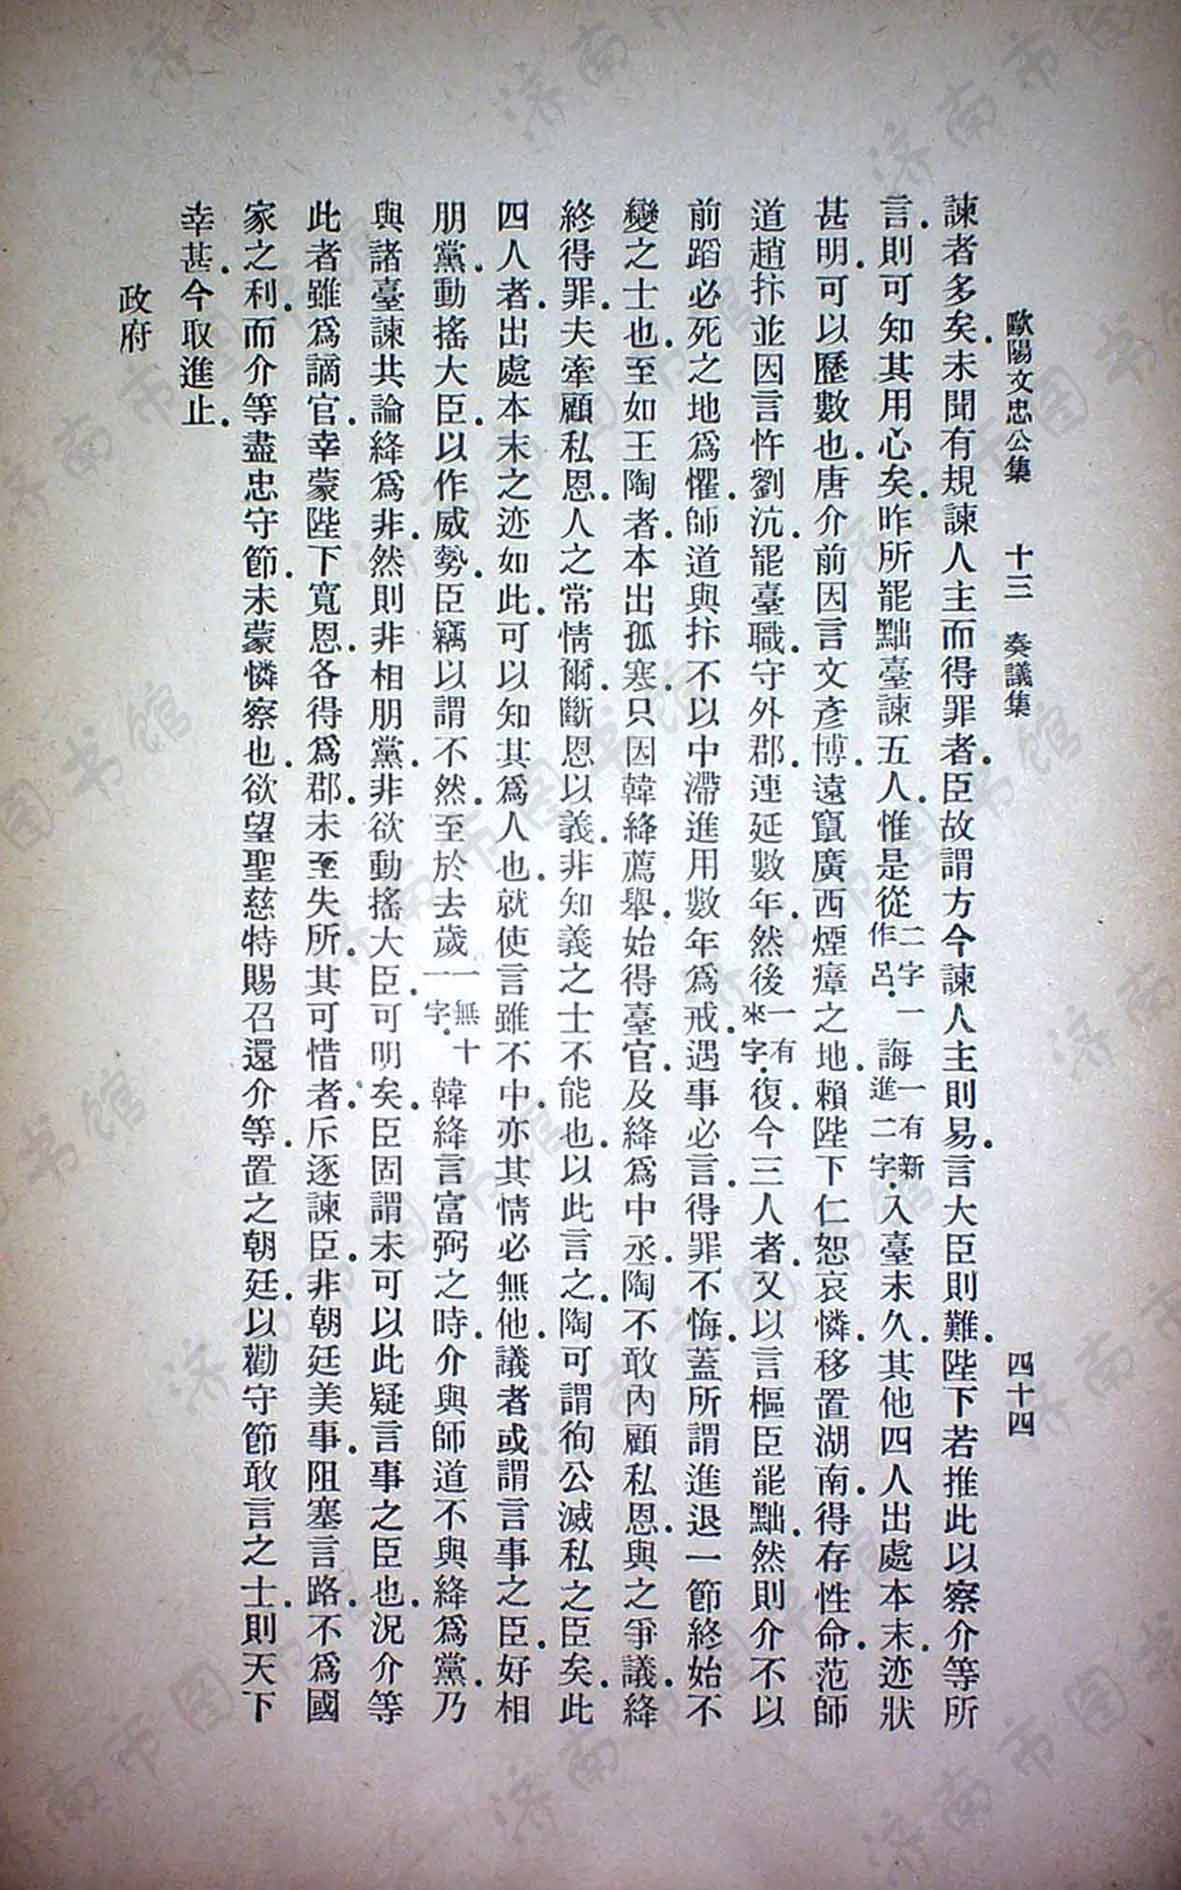 歐陽文忠公集　十三　奏議集　四十四
諫者多矣.未聞有規諫人主而得罪者.臣故謂方今諫人主則易.言大臣則難.陛下若推此以察介等所
言.則可知其用心矣.昨所罷黜臺諫五人.惟是從二字一作呂.誨一有新進二字.入臺未久.其他四人出處本末.迹狀
甚明.可以歷數也.唐介前因言文彥博.遠竄廣西煙瘴之地.賴陛下仁恕哀憐.移置湖南.得存性命.范師
道趙抃並因言忤劉沆.罷臺職.守外郡.連延數年.然後一有來字.復.今三人者.又以言樞臣罷黜.然則介不以
前蹈必死之地爲懼.師道與抃.不以中滯進用數年爲戒.遇事必言.得罪不悔.蓋所謂進退一節.終始不
變之士也.至如王陶者.本出孤寒.只因韓絳薦舉.始得臺官.及絳爲中丞.陶不敢內顧私恩.與之爭議.絳
終得罪.夫牽顧私恩.人之常情爾.斷恩以義.非知義之士不能也.以此言之.陶可謂徇公滅私之臣矣.此
四人者.出處本末之迹如此.可以知其爲人也.就使言雖不中.亦其情必無他.議者或謂言事之臣.好相
朋黨.動搖大臣.以作威勢.臣竊以謂不然.至於去歲一無十一字.韓絳言富弼之時.介與師道不與絳爲黨.乃
與諸臺諫共論絳爲非.然則非相朋黨.非欲動搖大臣.可明矣.臣固謂未可以此疑言事之臣也.況介等
此者雖爲謫官.幸蒙陛下寬恩.各得爲郡.未至失所.其可惜者.斥逐諫臣.非朝廷美事.阻塞言路.不爲國
家之利.而介等盡忠守節.未蒙憐察也.欲望聖慈特賜召還介等.置之朝廷.以勸守節敢言之士.則天下
幸甚.今取進止.
政府